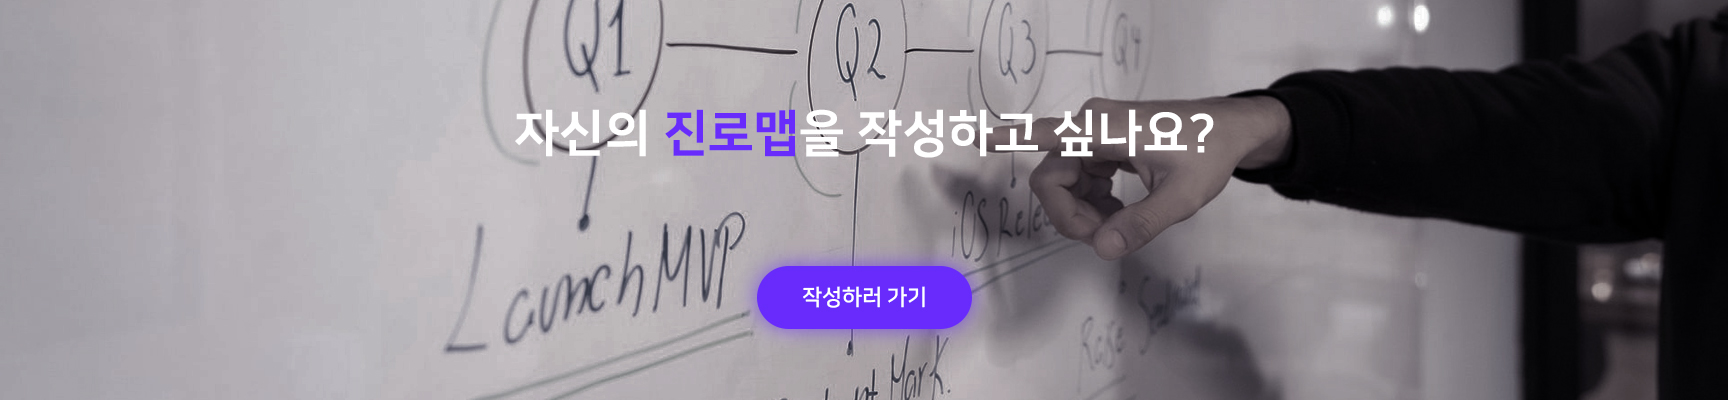 Q1 Q2 Q3 Q4
자신의 진로맵을 작성하고 싶나요?
Launch MVP
iOS
작성하러 가기
Mark.
Raise